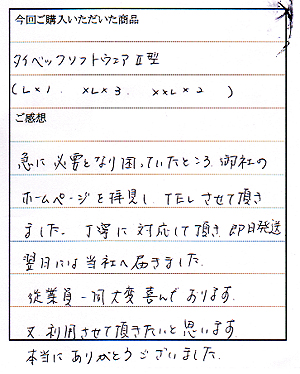 今回ご購入いただいた商品
タイベックソフトウェアⅡ型
(L×1. XL×3. XXL×2 )
ご感想
急に必要となり困っていたところ、御社の
ホームページを拝見し、TELさせて頂き
ました。丁寧に対応して頂き、即日発送
翌日には当社へ届きました。
従業員一同大変喜んでおります。
又、利用させて頂きたいと思います
本当にありがとうございました。